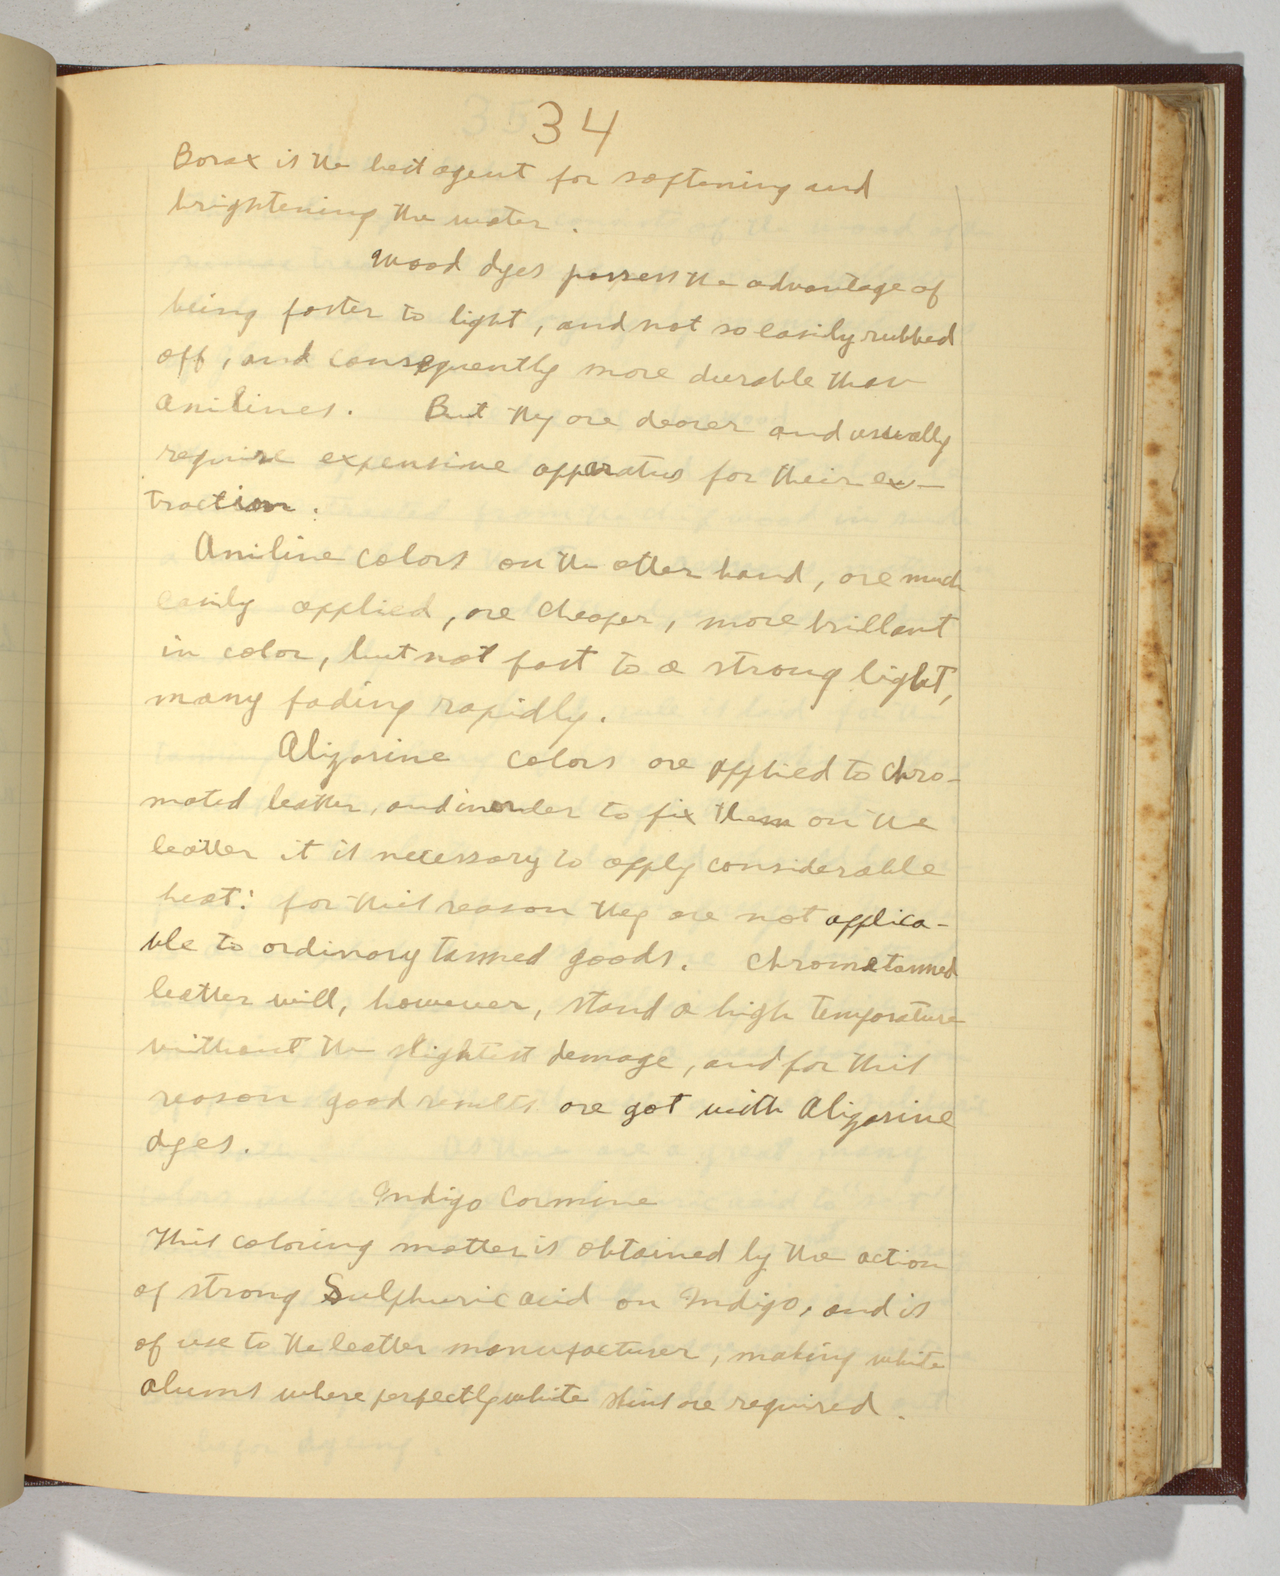 34
Borax is the best agent for softening and
brightening the water.
Wood dyes possess the advantage of
being faster to light, and not so easily rubbed
off, and consequently more durable than
anilines. But they are dearer and usually
require expensive apparatus for their ex-
traction.
Aniline colors on the other hand, are much
easily applied, are cheaper, more brillant
in color, but not fast to a strong light,
many fading rapidly.
Alizarine colors are applied to chro-
mated leather, and in order to fix them on the
leather it is necessary to apply considerable
heat: for this reason they are not applica-
ble to ordinary tanned goods. Chrome tanned
leather will, however, stand a high temperature
without the slightest damage, and for this
reason good results are got with Alizarine
dyes.
Indigo Carmine
This coloring matter is obtained by the action
of strong Sulphuric acid on Indigo, and is
of use to the leather manufacturer, making white
alums where perfectly white skins are required.